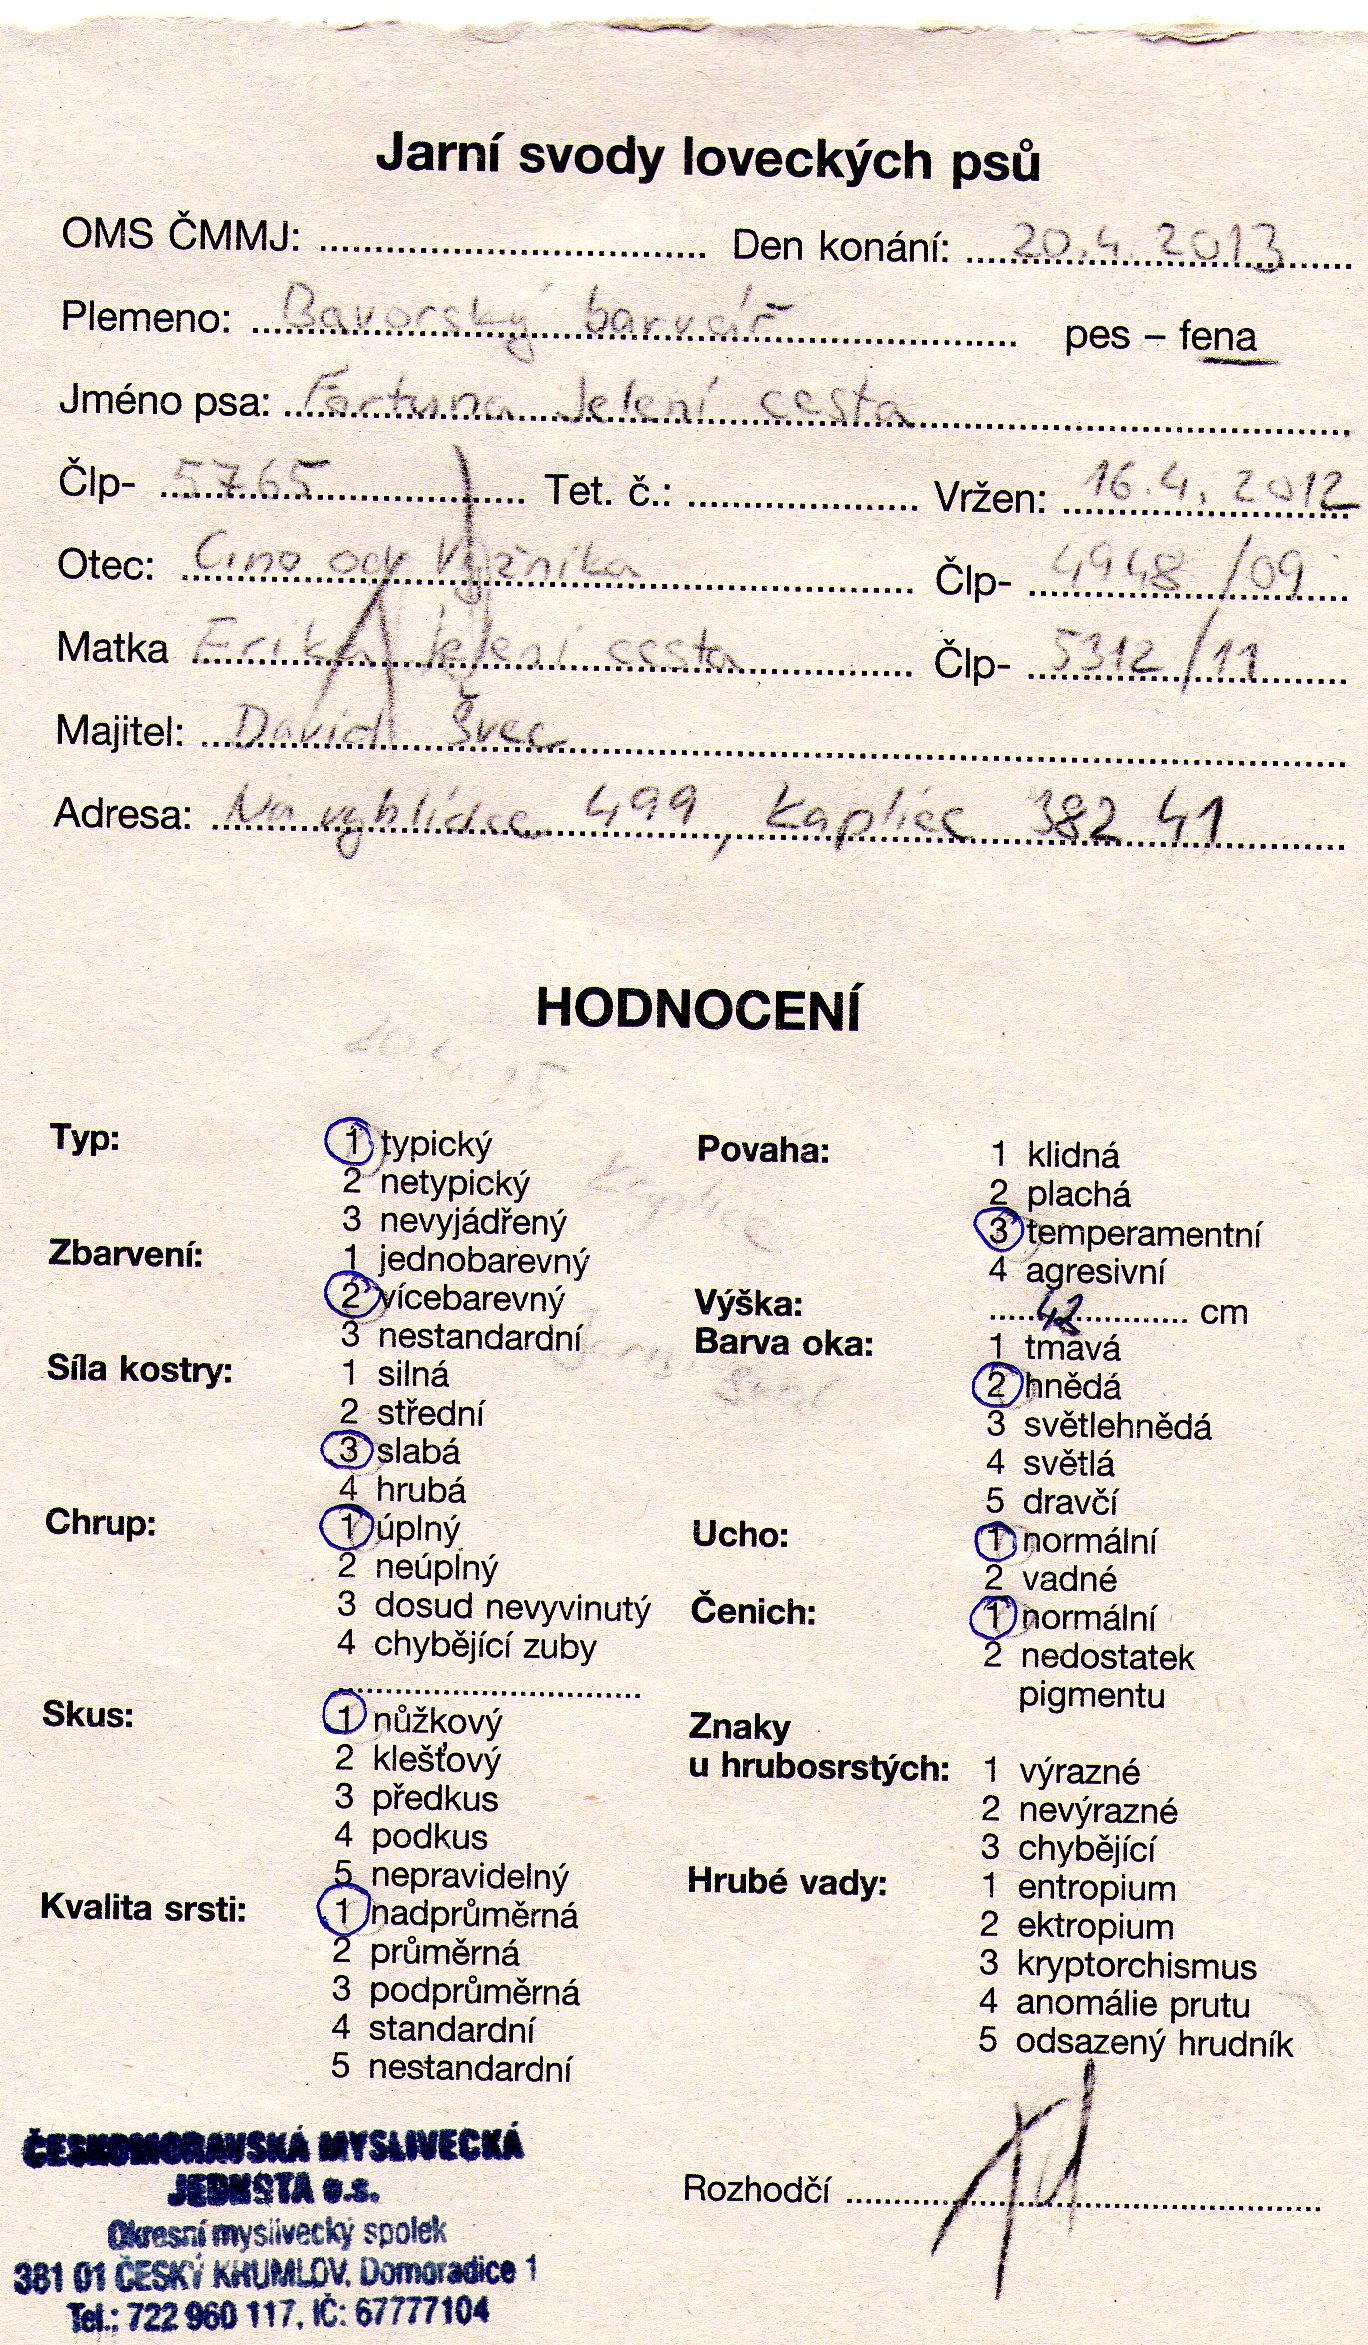 Jarní svody loveckých psů
OMS ČMMJ: .................... Den konání: 20.4.2013
Plemeno: Bavorský barvář pes – fena
Jméno psa: Fortuna Jelení cesta
Člp- 5765 Tet. č.: .................... Vržen: 16.4.2012
Otec: Cino od Vyžníka Člp- 4948/09
Matka Erika jelení cesta Člp- 5312/11
Majitel: David Švec
Adresa: Na vyhlídce 499, Kaplice 382 41
HODNOCENÍ
Typ:
1 typický
2 netypický
3 nevyjádřený
Zbarvení:
1 jednobarevný
2 vícebarevný
3 nestandardní
Síla kostry:
1 silná
2 střední
3 slabá
4 hrubá
Chrup:
1 úplný
2 neúplný
3 dosud nevyvinutý
4 chybějící zuby
....................
Skus:
1 nůžkový
2 klešťový
3 předkus
4 podkus
5 nepravidelný
Kvalita srsti:
1 nadprůměrná
2 průměrná
3 podprůměrná
4 standardní
5 nestandardní
Povaha:
1 klidná
2 plachá
3 temperamentní
4 agresivní
Výška:
42 cm
Barva oka:
1 tmavá
2 hnědá
3 světlehnědá
4 světlá
5 dravčí
Ucho:
1 normální
2 vadné
Čenich:
1 normální
2 nedostatek
pigmentu
Znaky
u hrubosrstých:
1 výrazné
2 nevýrazné
3 chybějící
Hrubé vady:
1 entropium
2 ektropium
3 kryptorchismus
4 anomálie prutu
5 odsazený hrudník
ČESKOMORAVSKÁ MYSLIVECKÁ
JEDNOTA o.s.
Okresní myslivecký spolek
381 01 ČESKÝ KRUMLOV, Domoradice 1
Tel.: 722 960 117, IČ: 67777104
Rozhodčí ....................